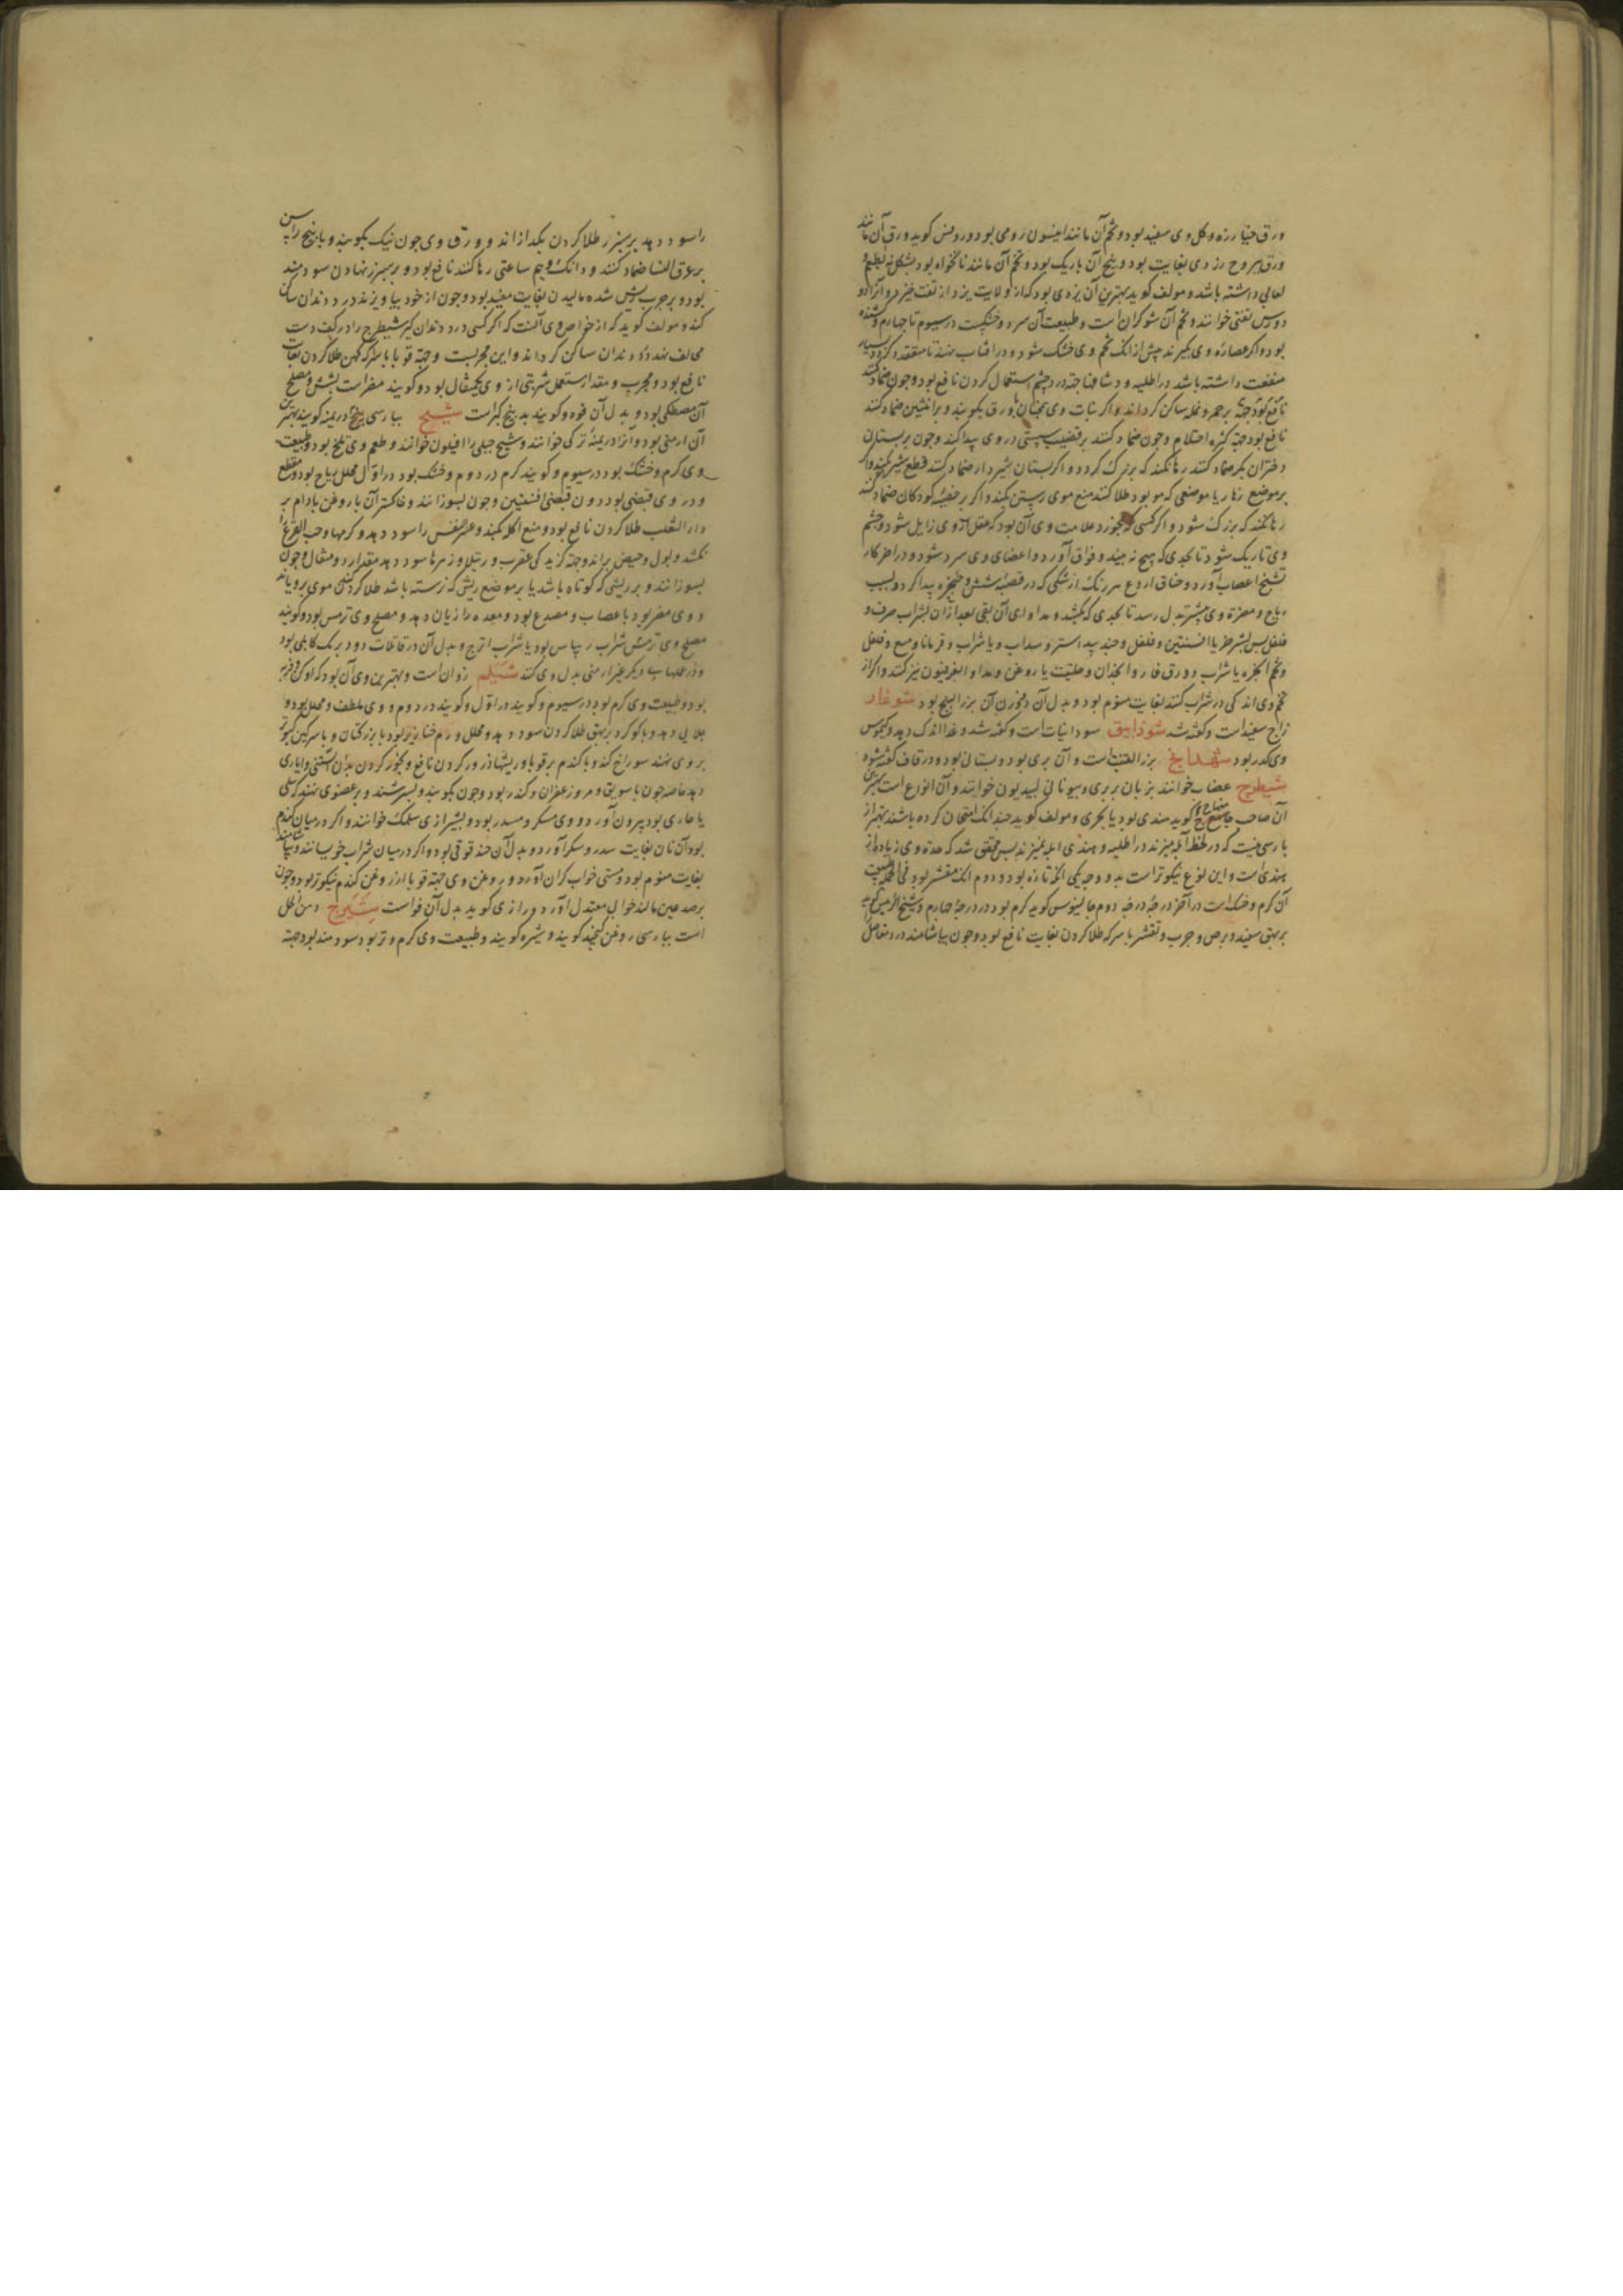 ورق خیار زه و کل وی سفید بود و تخم آن مانند انیسون رومی بود و رونس کوید ورق آن مانند
ورق یبروح زردی بغایت بود و بیخ آن باریک بود و تخم آن مانند نانخواه بود بشکل بی طعم و
لعابی داشته باشد و مولف کوید بهترین آن یزدی بود که از ولایت یزد از تفت خیزد و آنرا دو
دورس تفتی خوانند و تخم آن شوکران است و طبیعت آن سرد و خشکست در سیوم تا چهارم
بود و اکر عصاره وی بکیرند پیش از آنک تخم وی خشک شود و در آفتاب نهند تا منعقد کردد بسیار
منفعت داشته باشد در اطلیه و در شافها جهة درد چشم استعمال کردن نافع بود و چون ضماد کنند
نافع بود جهة حمره و نمله ساکن کرداند و اکر نبات وی همچنان با ورق بکوبند و بر انثیین ضماد کنند
نافع بود جهة کثرة احتلام و چون ضماد کنند بر قضیب سستی در وی پیدا کند و چون بر پستان
دختران بکر ضماد کنند رها نکند که بزرک کردد و اکر بستان شیردار ضماد کنند قطع شیر بکند و اکر
بر موضع زهار یا موضعی که مو بود طلا کنند منع موی رستن بکند و اکر بر خصیه کودکان ضماد کنند
رها نکند که بزرک شود و اکر کسی که بخورد علامت وی آن بود که عقل از وی زایل شود و چشم
وی تاریک شود تا بحدی که هیچ نه بیند و فواق آورد و اعضای وی سرد شود و در آخر کار
تشنج اعصاب آورد و خناق
ریاح و مضرة وی پیشتر بدل رسد تا بحدی که بکشد و مداوای آن بقی بعد از آن بشراب صرف و
فلفل پس بشیر خر یا افسنتین و فلفل و جند بیدستر و سداب و یا شراب و قردمانا و میعه و فلفل
و تخم انجره یا شراب و ورق غار و انجدان و حلتیت یا روغن و مداوا بفرفیون نیز کنند و اکر از
تخم وی اندکی در شراب کنند بغایت منوم بود و بدل آن بوزن آن بزر البنج بود شوغار
زاج سفید است و کفته شد شوذانیق سودانیات است و کفته شد و غذا اندک دهد و کیموس
وی بد بود شهدانج بزر القنب است و آن بری بود و بستانی بود و در قاف کفته شود
شیطرج عصاب خوانند بزبان بربری و بیونانی لیبدیون خوانند و آن انواع است بهترین
آن صاحب منهاج کوید هندی بود یا بحری و مولف کوید چندانک امتحان کرده باشند بهتر از
پارسی نیست که در لحظه آبله میزند در اطلیه و هندی آبله نمیزند پس محقق شد که حدة وی زیاده از
هندی است و این نوع نیکوتر است بدو وجه یکی آنکه تازه بود و دوم آنک مقشر بود فی الجمله طبیعت
آن کرم و خشک است در آخر درجه دوم جالینوس کوید کرم بود در درجه چهارم و شیخ الرئیس کوید
بر بهق سفید و برص و جرب و تقشر با سرکه طلا کردن بغایت نافع بود و چون بیاشامند درد مفاصل
را سود دهد بر سپرز طلا کردن بکدازاند و ورق وی چون نیک بکوبند و با بیخ راسن
بر عرق النسا ضماد کنند و دانک و نیم ساعتی رها کنند نافع بود و بر سپرز نهادن سودمند
بود و بر جرب ریش شده مالیدن بغایت مفید بود و چون از خود بیاویزند درد دندان ساکن
کند و مولف کوید که از خواص وی آنست که اکر کسی درد دندان کیرد شیطرج را در کف دست
مخالف نهد درد دندان ساکن کرداند و این مجربست و جهة قوبا با سرکه کهن طلا کردن بغایت
نافع بود و مجرب و مقدار مستعمل شربتی از وی یکمثقال بود و کویند مضر است بشش و مصلح
آن مصطکی بود و بدل آن فوه و کویند بدل بیخ کبر است شیح بپارسی درمنه کویند بهترین
آن ارمنی بود و آنرا درمنه ترکی خوانند و شیح جبلی را افیلون خوانند و طعم وی تلخ بود و طبیعت
وی کرم و خشک بود در سیوم و کویند کرم در دوم و خشک بود در اول محلل ریاح بود و مقطع
و در وی قبضی بود دون قبضی افسنتین و چون بسوزانند و خاکستر آن با روغن بادام بر
داء الثعلب طلا کردن نافع بود و منع اکله بکند و عسر نفس را سود دهد و کرمها و حب القرع را
بکشد و بول و حیض براند و جهة کزیدکی عقرب و رتیلا و زهرها سود دهد مقدار دو مثقال و چون
بسوزانند و بر ریشی که کوتاه باشد یا بر موضع ریش که نرسته باشد طلا کردن موی برویاند
و وی مضر بود باعصاب و مصدع بود و معده را زیان دهد و مصلح وی ترمس بود و کویند
مصلح وی ترمش شراب ریباس بود یا شراب اترج و بدل آن در قاتلات دود برنک کابلی بود
و در علتهاء دیکر غیر ارمنی بدل وی کنند شیلم زوان است و بهترین وی آن بود که او کن و فربه
بود و طبیعت وی کرم بود در سیوم و کویند در اول و کویند در دوم و وی ملطف و محلل بود و
جلایی دهد و با کوکرد بر بهق طلا کردن سود دهد و محلل ورم خنازیر بود با بزر کتان و با سرکین کبوتر
بر وی نهند سوراخ کند و با کندم بر قوبا و ریشها ذرور کردن نافع و بخور کردن بدان آبستنی را یاری
دهد خاصه چون با سویق و مر و زعفران و کندر بود و چون بکوبند و بسرشند و بر عضوی نهند که سلی
یا خاری بود بیرون آورد و وی مسکر و مسدر بود و بشیرازی سلمک خوانند و اکر در میان کندم
بود آن نان بغایت سدر و سکر آورد و بدل آن حندقوقی بود و اکر در میان شراب خویسانند و بیاشامند
بغایت منوم بود و مستی خواب کران آورد و روغن وی جهة قوبا از روغن کندم نیکوتر بود و چون
بر صدغین مالند خواب معتدل آورد و رازی کوید بدل آن فواست شیرج دهن الحل
است بپارسی روغن کنجد کویند و شیره کویند و طبیعت وی کرم و تر بود سودمند بود جهة